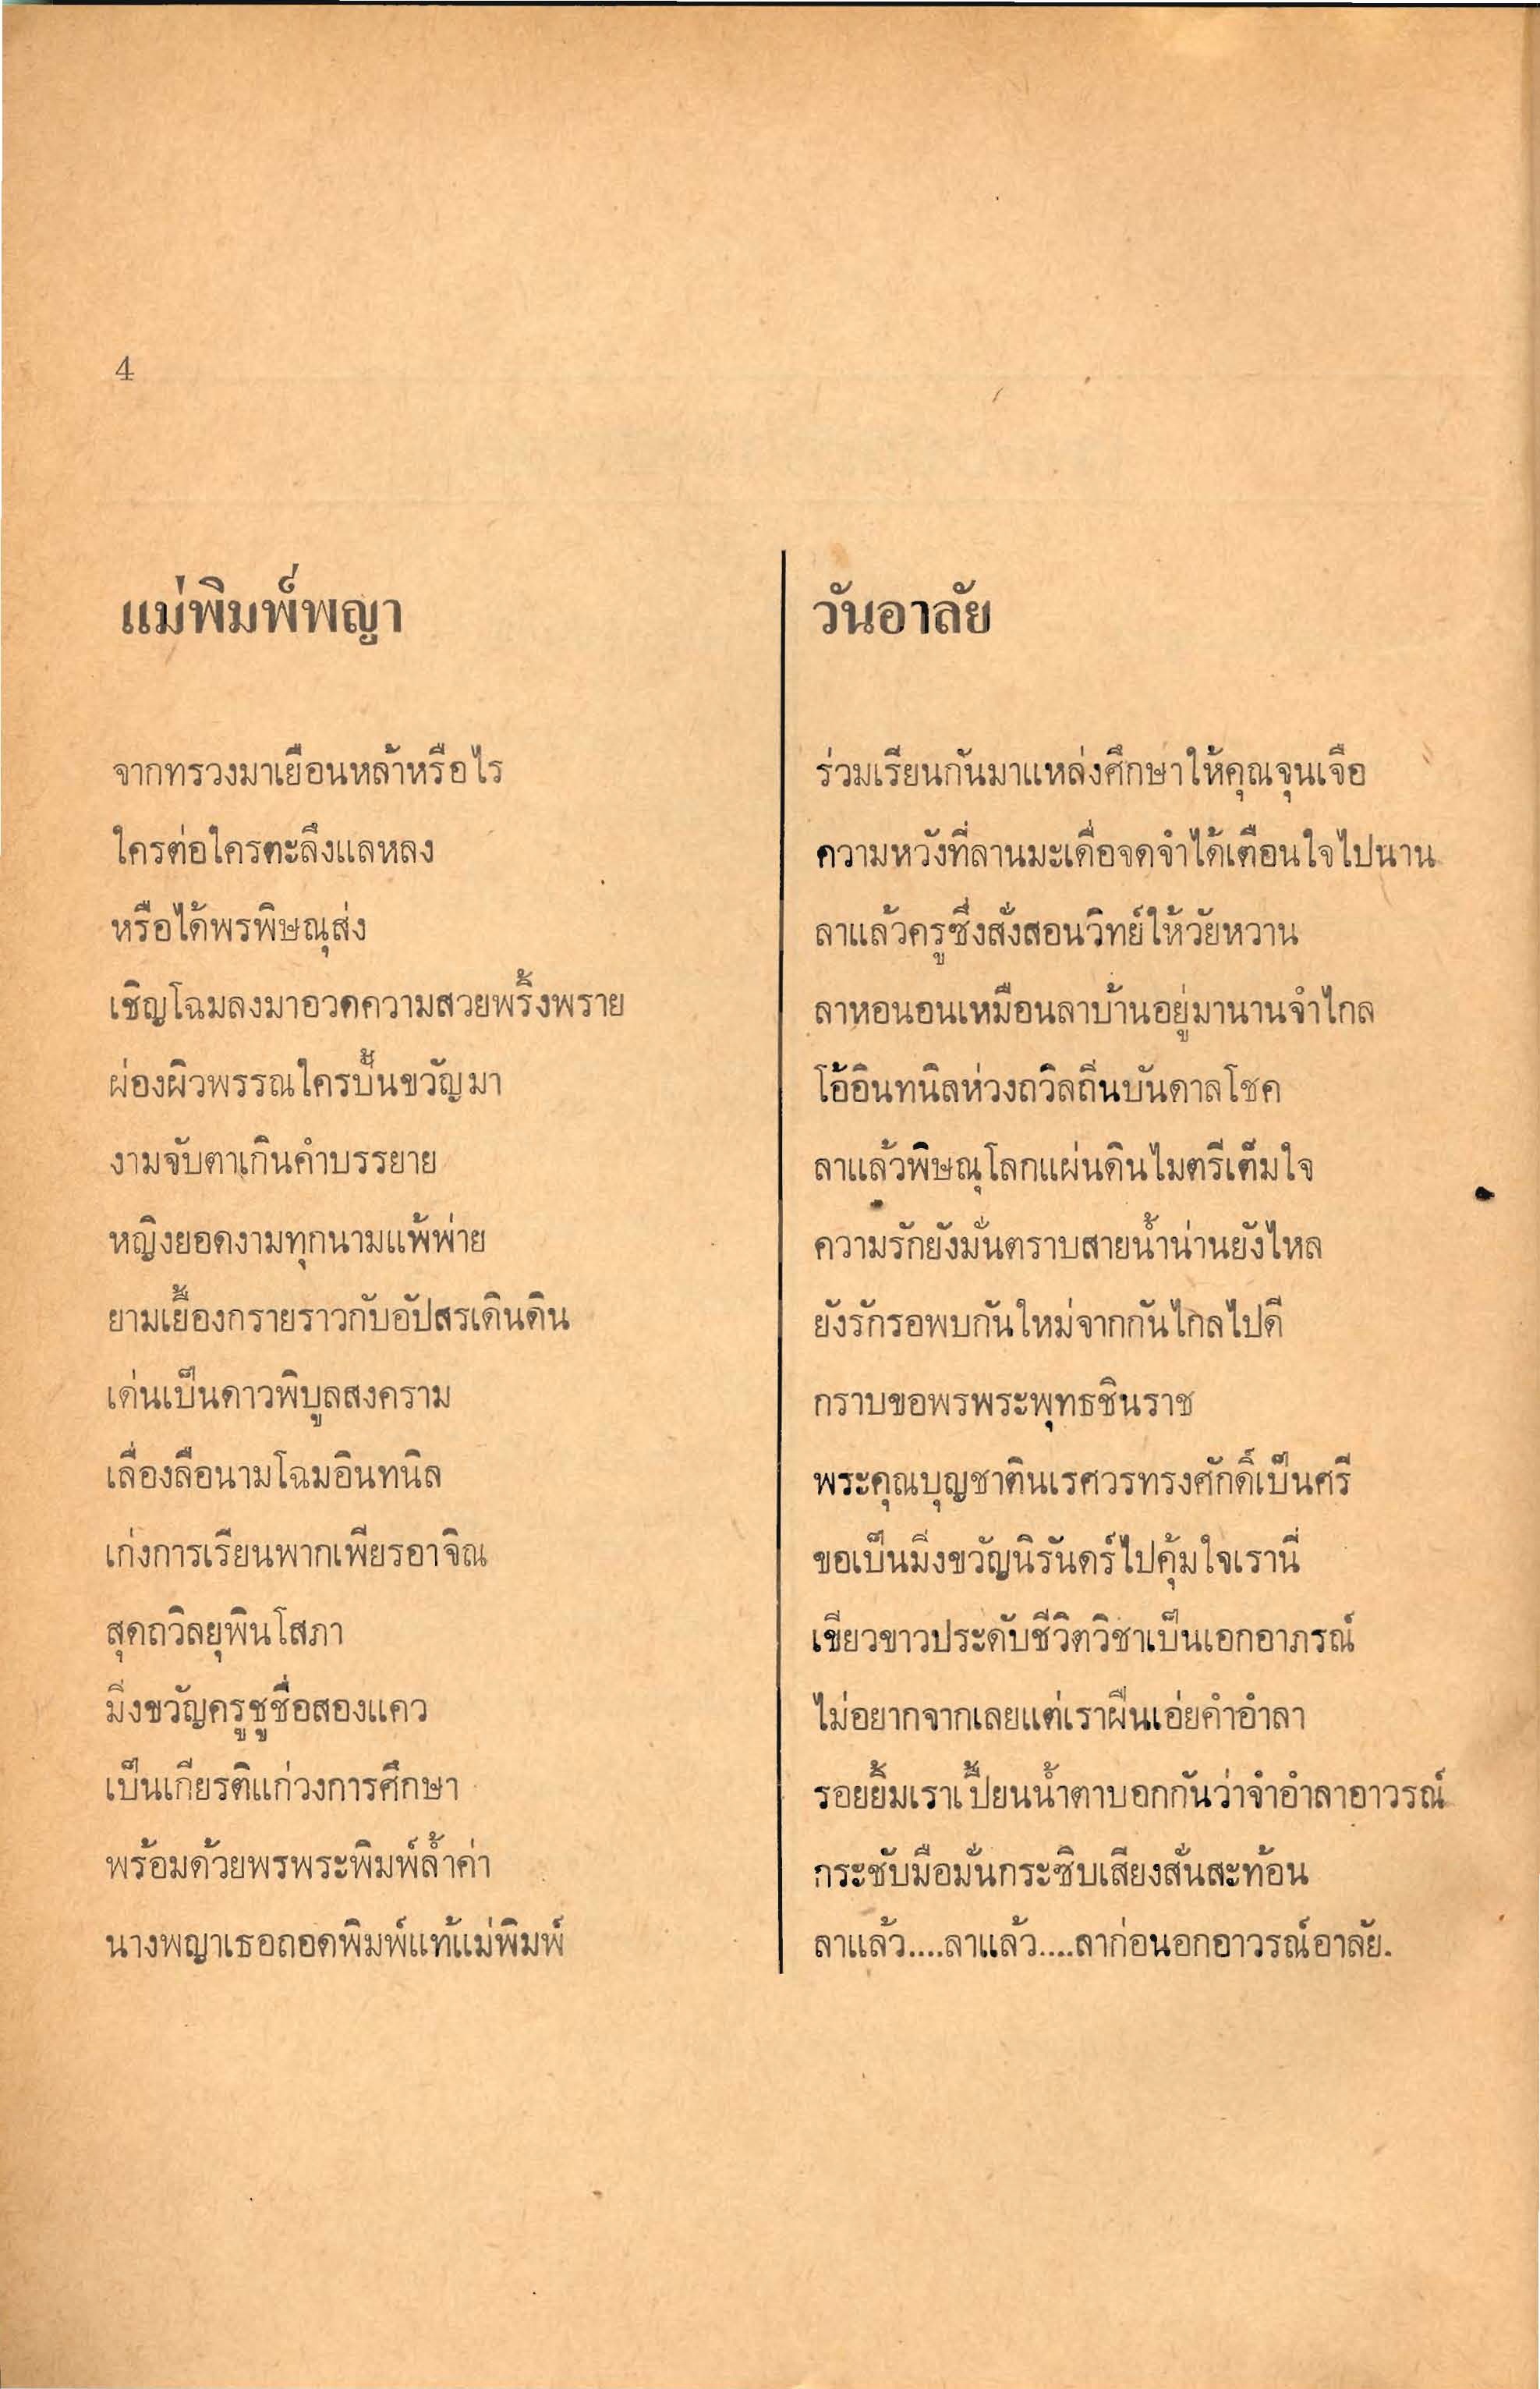 4
แม่พิมพ์พญา
จากทรวงมาเยือนหล้าหรือไร
ใครต่อใครตะลึงแลหลง
หรือได้พรพิษณุส่ง
เชิญโฉมลงมาอวดความสวยพริ้งพราย
ผ่องผิวพรรณใครปั้นขวัญมา
งามจับตาเกินคำบรรยาย
หญิงยอดงามทุกนามแพ้พ่าย
ยามเยื้องกรายราวกับอัปสรเดินดิน
เด่นเป็นดาวพิบูลสงคราม
เลื่องลือนามโฉมอินทนิล
เก่งการเรียนพากเพียรอาจิณ
สุดถวิลยุพินโสภา
มิ่งขวัญครูชูชื่อสองแคว
เป็นเกียรติแก่วงการศึกษา
พร้อมด้วยพรพระพิมพ์ล้ำค่า
นางพญาเธอถอดพิมพ์แท้แม่พิมพ์
วันอาลัย
ร่วมเรียนกันมาแหล่งศึกษาให้คุณจุนเจือ
ความหวังที่ลานมะเดื่อจดจำได้เตือนใจไปนาน
ลาแล้วครูซึ่งสั่งสอนวิทย์ให้วัยหวาน
ลาหอนอนเหมือนลาบ้านอยู่มานานจำไกล
โอ้อินทนิลห่วงถวิลถิ่นบันดาลโชค
ลาแล้วพิษณุโลกแผ่นดินไมตรีเต็มใจ
ความรักยังมั่นตราบสายน้ำน่านยังไหล
ยังรักรอพบกันใหม่จากกันไกลไปดี
กราบขอพรพระพุทธชินราช
พระคุณบุญชาตินเรศวรทรงศักดิ์เป็นศรี
ขอเป็นมิ่งขวัญนิรันดร์ไปคุ้มใจเรานี่
เขียวขาวประดับชีวิตวิชาเป็นเอกอาภรณ์
ไม่อยากจากเลยแต่เราฝืนเอ่ยคำอำลา
รอยยิ้มเราเปื้ยนน้ำตาบอกกันว่าจำอำลาอาวรณ์
กระชับมือมั่นกระซิบเสียงสั่นสะท้อน
ลาแล้ว....ลาแล้ว....ลาก่อนอกอาวรณ์อาลัย.